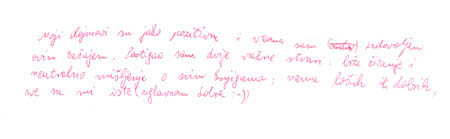 Moji dojmovi su jako pozitivni i veoma sam zadovoljan
ovim tečajem. Postigao sam dvije važne stvari: brže čitanje i
neutralno mišljenje o svim knjigama; nema loših ili dobrih,
sve su mi iste (uglavnom dobre :-))